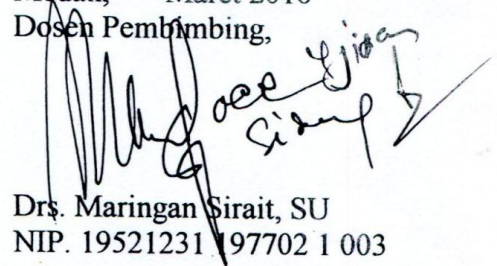 Medan, Maret 2016
Dosen Pembimbing,
acc Ujian
Sidang
Drs. Maringan Sirait, SU
NIP. 19521231 197702 1 003